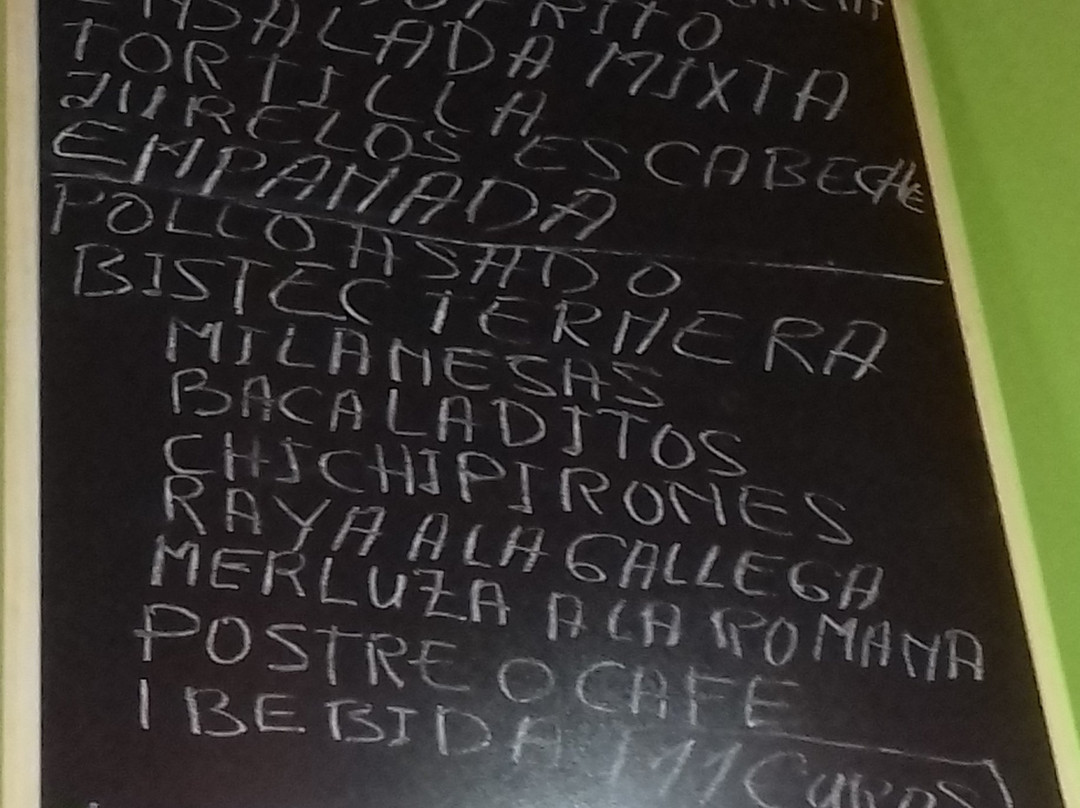 FRITO
ENSALADA MIXTA
TORTILLA
JURELOS ESCABECHE
EMPANADA
POLLO ASADO
BISTEC TERNERA
MILANESAS
BACALADITOS
CHICHIPIRONES
RAYA A LA GALLEGA
MERLUZA A LA ROMANA
POSTRE O CAFE
1 BEBIDA 11 EUROS